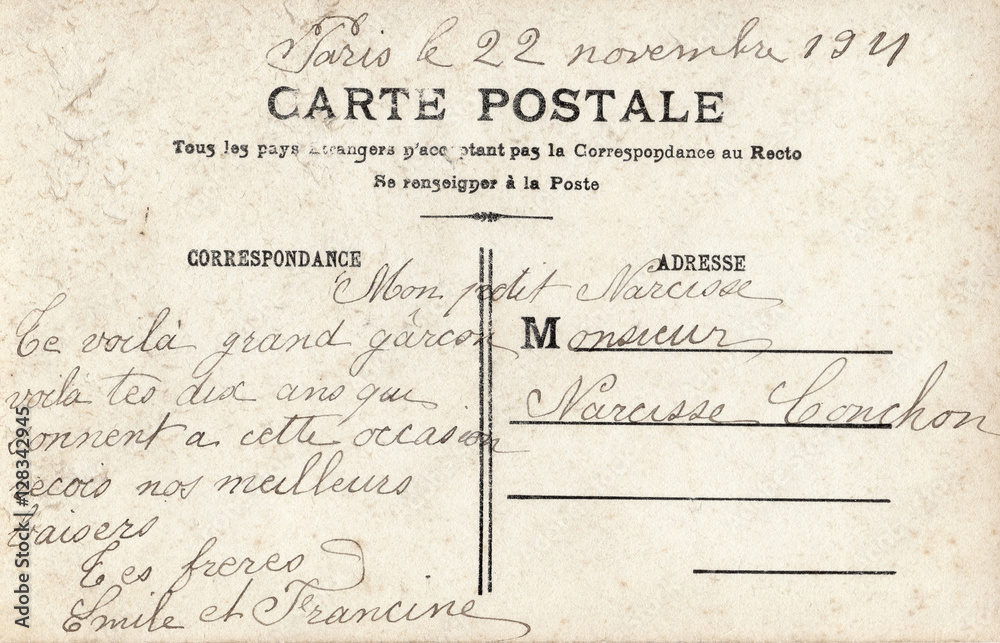 Paris le 22 novembre 1911
CARTE POSTALE
Tous les pays Etrangers n'acceptant pas la Correspondance au Recto
Se renseigner à la Poste
CORRESPONDANCE
ADRESSE
Mon petit Narcisse
Te voilà grand garçon
voilà tes dix ans qui
sonnent a cette occasion
recois nos meilleurs
baisers
Tes freres
Emile et Francine
Monsieur
Narcisse Conchon
Adobe Stock | #128342945